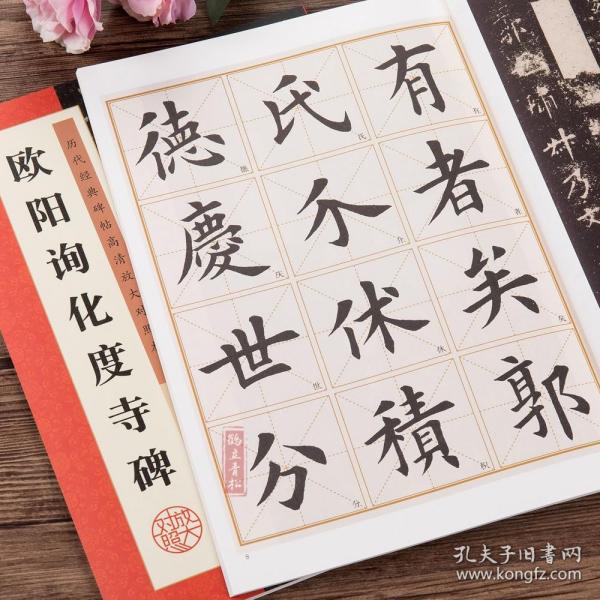 有者矣郭
氏介休積
德慶世分
有
者
矣
氏
介
休
积
德
庆
世
分
8
历代经典碑帖高清放大对照本
欧阳询化度寺碑
放大对照
鹤立青松
孔夫子旧书网
www.kongfz.com